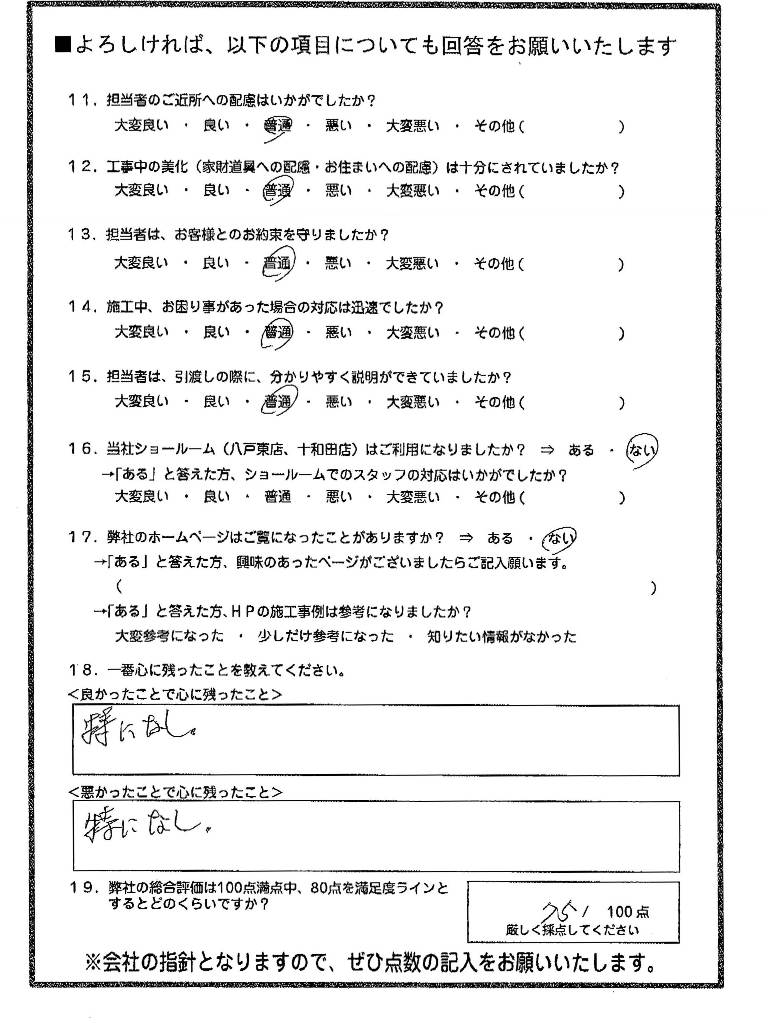 ■よろしければ、以下の項目についても回答をお願いいたします
１１．担当者のご近所への配慮はいかがでしたか？
大変良い ・ 良い ・ 普通 ・ 悪い ・ 大変悪い ・ その他（　　　　　　）
１２．工事中の美化（家財道具への配慮・お住まいへの配慮）は十分にされていましたか？
大変良い ・ 良い ・ 普通 ・ 悪い ・ 大変悪い ・ その他（　　　　　　）
１３．担当者は、お客様とのお約束を守りましたか？
大変良い ・ 良い ・ 普通 ・ 悪い ・ 大変悪い ・ その他（　　　　　　）
１４．施工中、お困り事があった場合の対応は迅速でしたか？
大変良い ・ 良い ・ 普通 ・ 悪い ・ 大変悪い ・ その他（　　　　　　）
１５．担当者は、引渡しの際に、分かりやすく説明ができていましたか？
大変良い ・ 良い ・ 普通 ・ 悪い ・ 大変悪い ・ その他（　　　　　　）
１６．当社ショールーム（八戸東店、十和田店）はご利用になりましたか？ ⇒ ある ・ ない
→「ある」と答えた方、ショールームでのスタッフの対応はいかがでしたか？
大変良い ・ 良い ・ 普通 ・ 悪い ・ 大変悪い ・ その他（　　　　　　）
１７．弊社のホームページはご覧になったことがありますか？ ⇒ ある ・ ない
→「ある」と答えた方、興味のあったページがございましたらご記入願います。
（　　　　　　　　　　　　　　　　　　　　　　　　　　　　　）
→「ある」と答えた方、ＨＰの施工事例は参考になりましたか？
大変参考になった ・ 少しだけ参考になった ・ 知りたい情報がなかった
１８．一番心に残ったことを教えてください。
＜良かったことで心に残ったこと＞
特になし。
＜悪かったことで心に残ったこと＞
特になし。
１９．弊社の総合評価は100点満点中、80点を満足度ラインと
するとどのくらいですか？
75 / 100点
厳しく採点してください
※会社の指針となりますので、ぜひ点数の記入をお願いいたします。